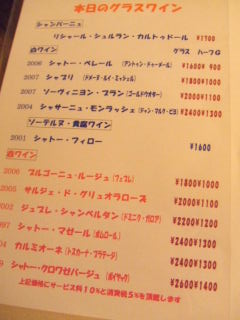 本日のグラスワイン
シャンパーニュ
リシャール・シュルラン・カルトゥドール ¥1700
白ワイン グラス ハーフG
2006 シャトー・ペレール (アントゥン・チャーメール) ¥1600¥ 900
2007 シャブリ (ドメーヌ・ルイ・ミッシェル) ¥1800¥1000
2007 ソーヴィニヨン・ブラン (ゴールドウォーター) ¥2000¥1100
2004 シャサーニュ・モンラッシェ (ジャン・マルク・ピヨ) ¥2400¥1300
ソーテルヌ・貴腐ワイン
2001 シャトー・フィロー ¥1600
赤ワイン
2006 ブルゴーニュ・ルージュ (フェブレ) ¥1800¥1000
2005 サルジェ・ド・グリュオラローズ ¥2000¥1100
2002 ジュブレ・シャンベルタン (ドミニク・ガロア) ¥2200¥1200
シャトー・マゼール (ポムロール) ¥2400¥1300
カルミオーネ (トスカーナ・プラテージ) ¥2400¥1300
シャトー・クロワゼバージュ (ポイヤック) ¥2600¥1400
上記価格にサービス料10%と消費税5%を頂戴します